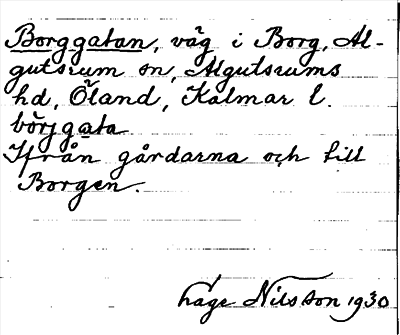 Borggatan, väg i Borg, Al-
gutsrum sn, Algutsrums
hd, Öland, Kalmar l.
bòrjgata
Ifrån gårdarna och till
Borgen.
Låge Nilsson 1930